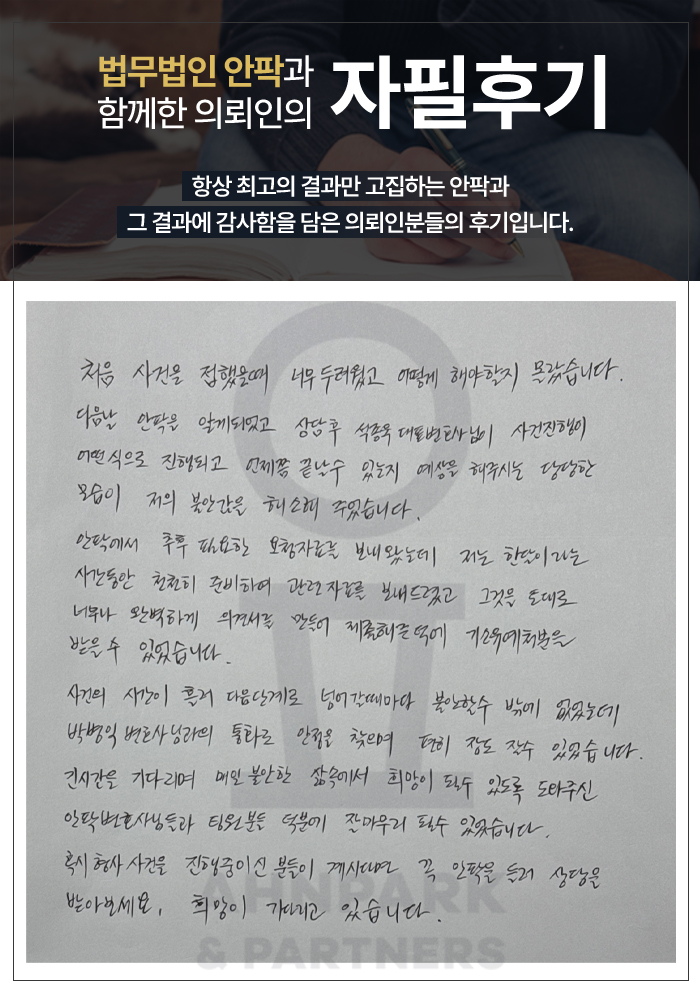 법무법인 안팍과
함께한 의뢰인의
자필후기
항상 최고의 결과만 고집하는 안팍과
그 결과에 감사함을 담은 의뢰인분들의 후기입니다.
처음 사건을 접했을때 너무 두려웠고 어떻게 해야할지 몰랐습니다.
다음날 안팍을 알게되었고 상담후 석종욱 대표변호사님이 사건진행이
어떤식으로 진행되고 언제쯤 끝날수 있는지 예상을 해주시는 당당한
모습이 저의 불안감을 해소해 주었습니다.
안팍에서 추후 필요한 요청자료를 보내왔는데 저는 한달이라는
시간동안 천천히 준비하여 관련자료를 보내드렸고 그것을 토대로
너무나 완벽하게 의견서를 만들어 제출해준 덕에 기소유예처분을
받을 수 있었습니다.
사건의 시간이 흘러 다음단계로 넘어갈때마다 불안할수 밖에 없었는데
박병익 변호사님과의 통화로 안정을 찾으며 편히 잠도 잘수 있었습니다.
긴시간을 기다리며 매일 불안한 삶속에서 희망이 될수 있도록 도와주신
안팍변호사님들과 팀원분들 덕분에 잘마무리 될수 있었습니다.
혹시 형사 사건을 진행중이신 분들이 계시다면 꼭 안팍을 들러 상담을
받아보세요, 희망이 기다리고 있습니다.
AHNPARK
& PARTNERS